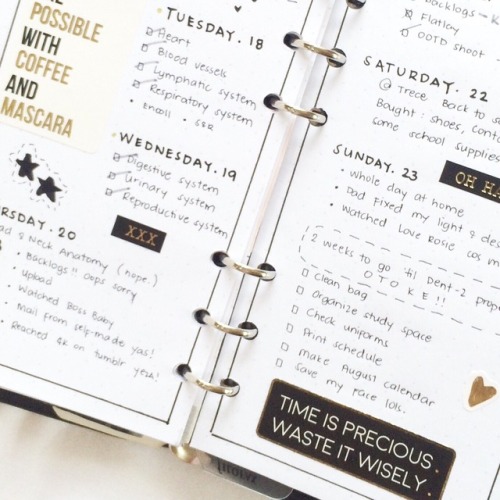 POSSIBLE
WITH
COFFEE
AND
MASCARA
TUESDAY. 18
Heart
Blood vessels
Lymphatic system
Respiratory system
• Enroll • S&R
WEDNESDAY. 19
Digestive system
Urinary system
Reproductive system
XXX
20
& Neck Anatomy (nope.)
• Backlogs!! oops sorry
• Upload
• Watched Boss Baby
• Mail from self-made yas!
• Reached 9k on tumblr yeza!
backlogs
Flatlay
OOTD shoot
SATURDAY. 22
@ Trece. Back to
Bought: shoes,
some school supplies
SUNDAY. 23
OH HA
• Whole day at home
• Dad fixed my light &
• Watched Love Rosie cos
2 weeks to go 'til Dent-2 proper
OTOKE!!
Clean bag
Organize study space
Check uniforms
Print schedule
Make August calendar
Save my face lols.
TIME IS PRECIOUS
WASTE IT WISELY.